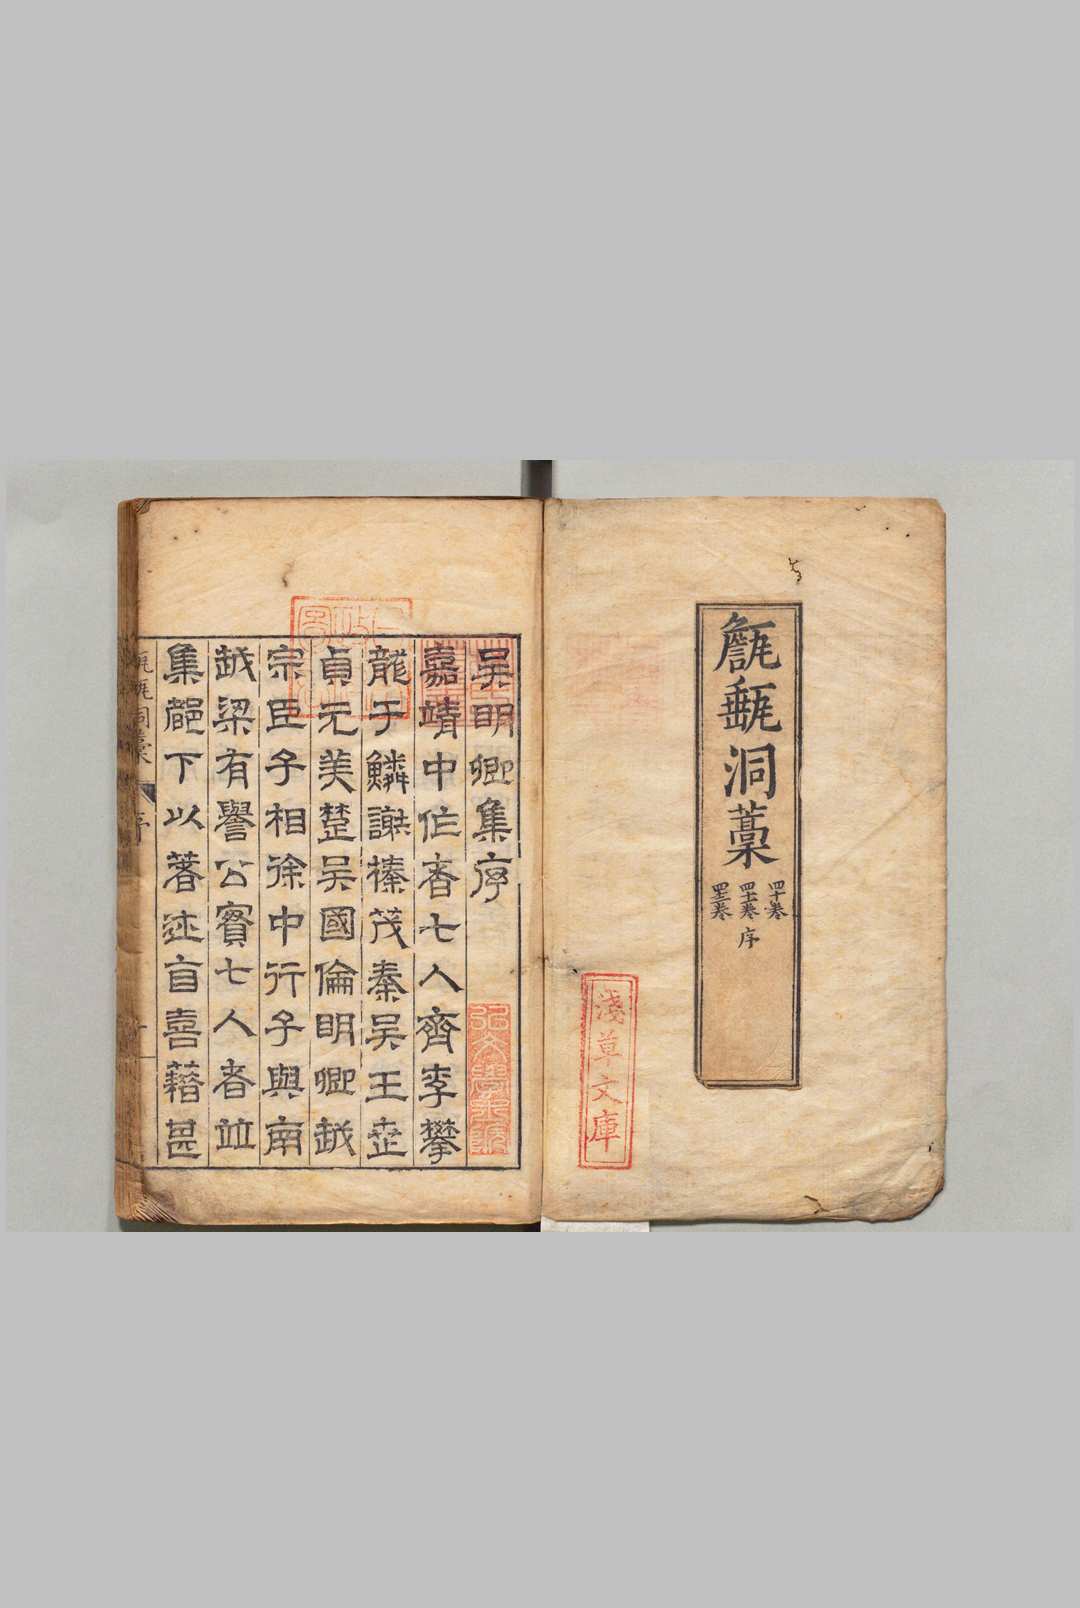 甔甀洞藁
四十卷
四十一卷 序
四十二卷
淺草文庫
吳明卿集序
嘉靖中作者七人齊李攀
龍于鱗謝榛茂秦吳王世
貞元美楚吳國倫明卿越
宗臣子相徐中行子與南
越梁有譽公實七人者竝
集都下以著述自喜藉甚
甔甀洞藁
序